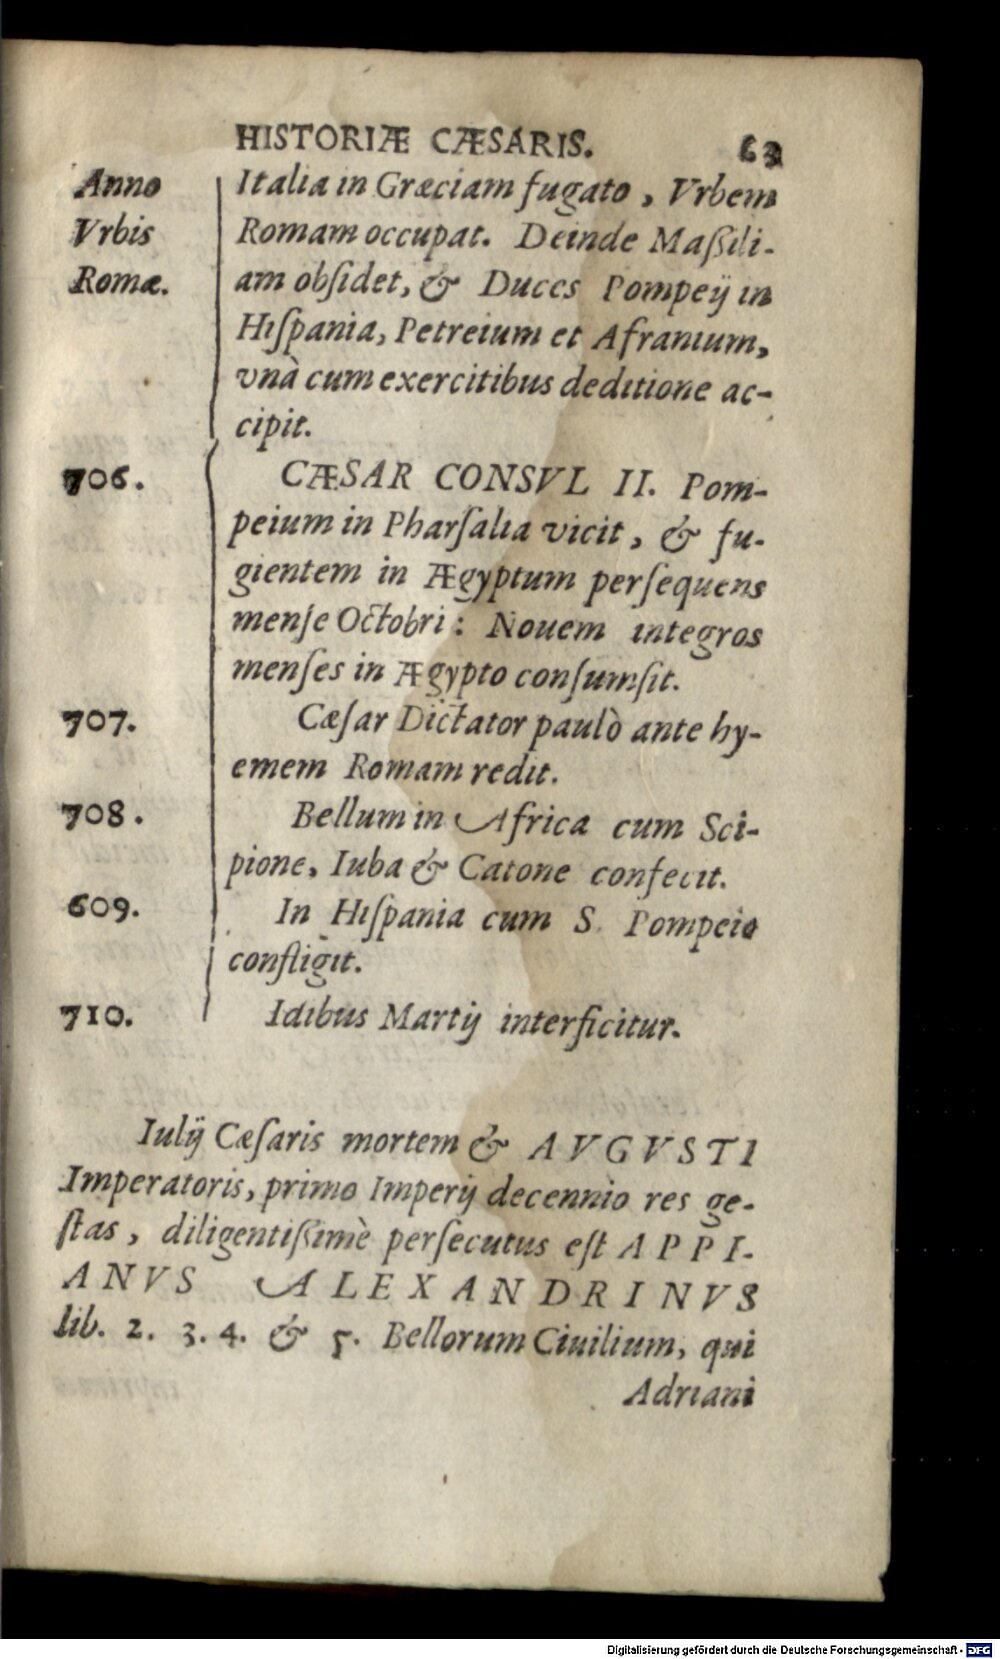 HISTORIÆ CÆSARIS. 63
Anno Italia in Græciam fugato, Vrbem
Vrbis Romam occupat. Deinde Maßili-
Romæ. am obſidet, & Duces Pompeij in
Hiſpania, Petreium et Afranium,
vnà cum exercitibus deditione ac-
cipit.
706. CÆSAR CONSVL II. Pom-
peium in Pharſalia vicit, & fu-
gientem in Ægyptum perſequens
menſe Octobri: Nouem integros
menſes in Ægypto conſumſit.
707. Cæſar Dictator paulò ante hy-
emem Romam redit.
708. Bellum in Africa cum Sci-
pione, Iuba & Catone confecit.
609. In Hiſpania cum S. Pompeio
confligit.
710. Idibus Martij interficitur.
Iulij Cæſaris mortem & AVGVSTI
Imperatoris, primo Imperij decennio res ge-
ſtas, diligentißimè perſecutus eſt APPI-
ANVS ALEXANDRINVS
lib. 2. 3. 4. & 5. Bellorum Ciuilium, qui
Adriani
Digitalisierung gefördert durch die Deutsche Forschungsgemeinschaft - DFG